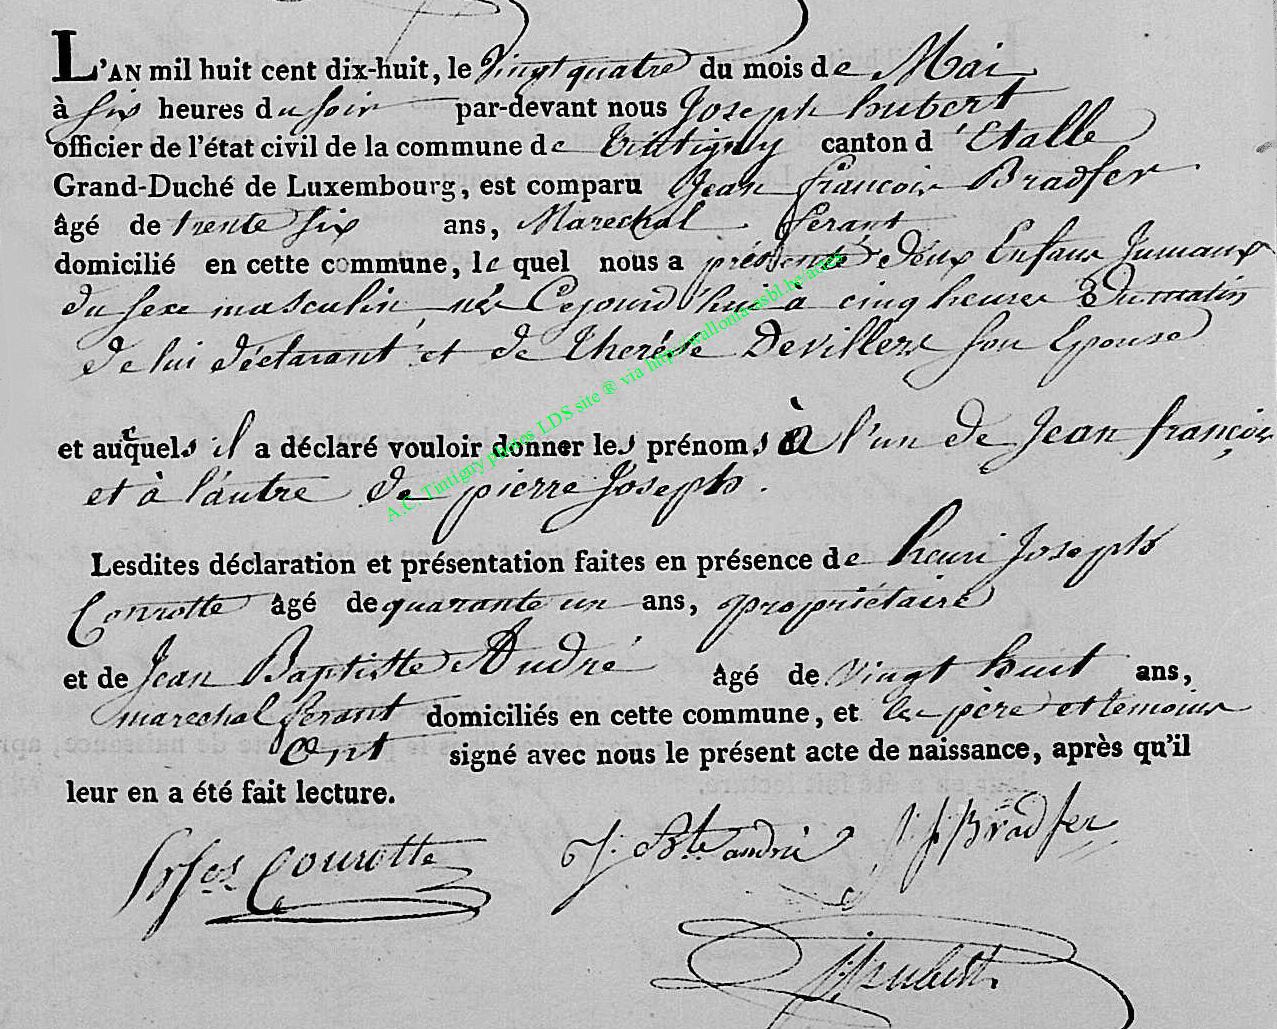 L'AN mil huit cent dix-huit, le vingt quatre du mois de Mai
à six heures du soir par-devant nous Joseph hubert
officier de l'état civil de la commune de tintigny canton d'Etalle
Grand-Duché de Luxembourg, est comparu Jean françois Bradfer
âgé de trente six ans, Marechal ferant
domicilié en cette commune, le quel nous a présenté deux Enfans Jumaux
du sexe masculin, nés Cejourd'hui à cinq heures du matin
de lui déclarant et de therése Devillers son Epouse
et auxquels il a déclaré vouloir donner les prénoms à l'un de Jean françois
et à l'autre de pierre Joseph.
Lesdites déclaration et présentation faites en présence de henri Joseph
Conrotte âgé de quarante un ans, propriétaire
et de Jean Baptiste André âgé de vingt huit ans,
marechal ferant domiciliés en cette commune, et les père et temoins
ont signé avec nous le présent acte de naissance, après qu'il
leur en a été fait lecture.
Conrotte J: Bte andré J: f: Bradfer
J: hubert
A.C. Tintigny photos LDS site ® via http://wallonia-asbl.be/actes